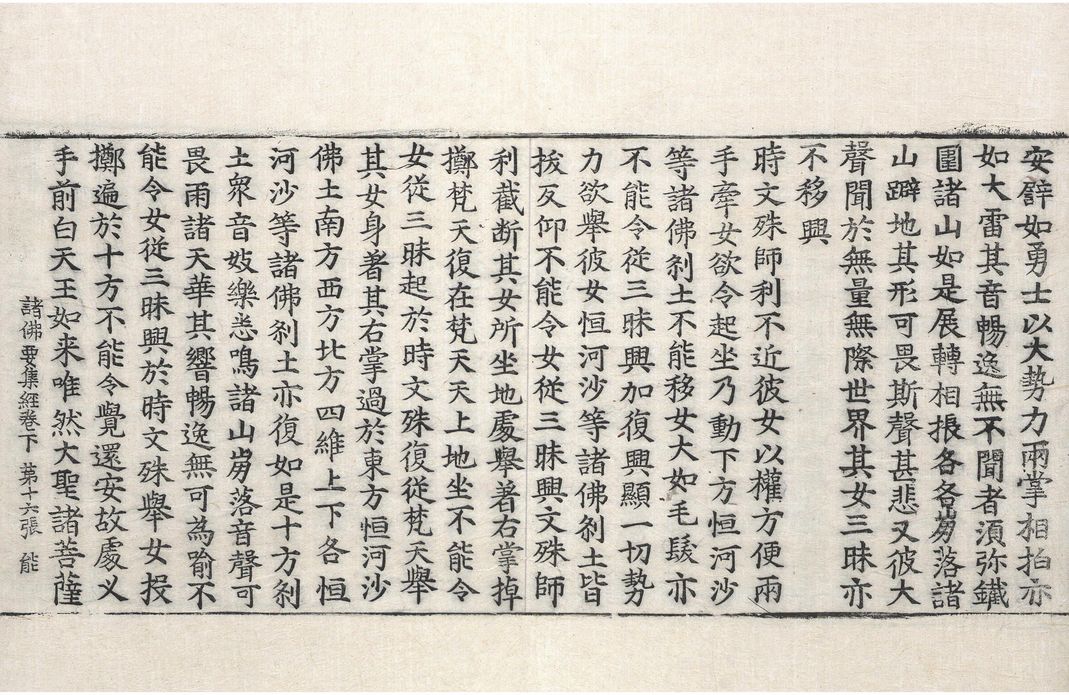 安譬如勇士以大勢力兩掌相拍亦
如大雷其音暢逸無不聞者須弥鐵
圍諸山如是展轉相掁各各崩落諸
山躃地其形可畏斯聲甚悲又彼大
聲聞於無量無際世界其女三昧亦
不移興
時文殊師利不近彼女以權方便兩
手牽女欲令起坐乃動下方恒河沙
等諸佛刹土不能移女大如毛髮亦
不能令從三昧興加復興顯一切勢
力欲舉彼女恒河沙等諸佛刹土皆
拔反仰不能令女從三昧興文殊師
利截断其女所坐地處舉著右掌掉
擲梵天復在梵天天上地坐不能令
女從三昧起於時文殊復從梵天舉
其女身著其右掌過於東方恒河沙
佛土南方西方北方四維上下各恒
河沙等諸佛刹土亦復如是十方刹
土衆音妓樂悉鳴諸山崩落音聲可
畏雨諸天華其響暢逸無可為喻不
能令女從三昧興於時文殊舉女投
擲遍於十方不能令覺還安故處乂
手前白天王如来唯然大聖諸菩薩
諸佛要集經卷下 第十六張 能